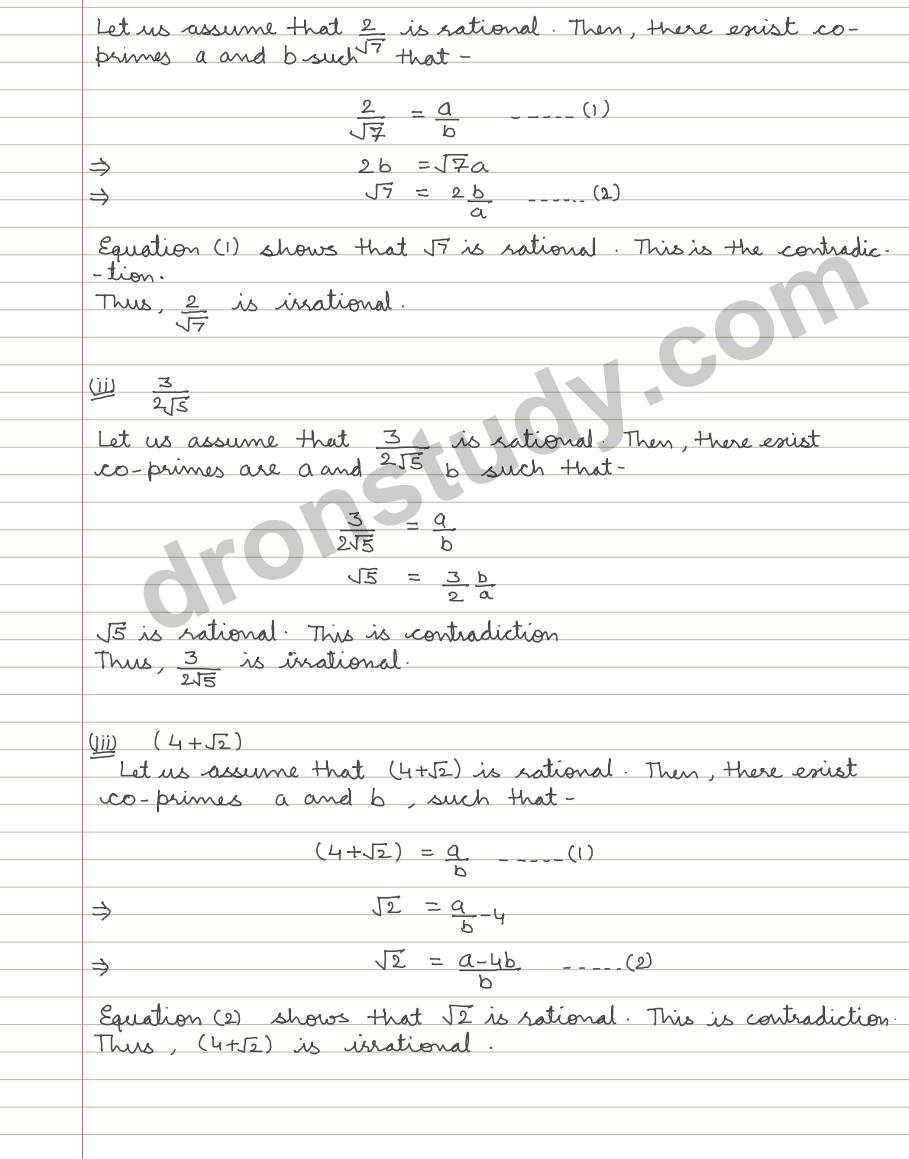 Let us assume that 2/√7 is rational. Then, there exist co-
primes a and b such that -
2/√7 = a/b ------(1)
⇒ 2b = √7a
⇒ √7 = 2 b/a ------(2)
Equation (1) shows that √7 is rational. This is the contradic-
-tion.
Thus, 2/√7 is irrational.
(ii) 3/2√5
Let us assume that 3/2√5 is rational. Then, there exist
co-primes are a and b such that-
3/2√5 = a/b
√5 = 3/2 b/a
√5 is rational. This is contradiction
Thus, 3/2√5 is irrational.
(iii) (4+√2)
Let us assume that (4+√2) is rational. Then, there exist
co-primes a and b, such that-
(4+√2) = a/b ------(1)
⇒ √2 = a/b - 4
⇒ √2 = a-4b/b ------(2)
Equation (2) shows that √2 is rational. This is contradiction.
Thus, (4+√2) is irrational.
dronstudy.com